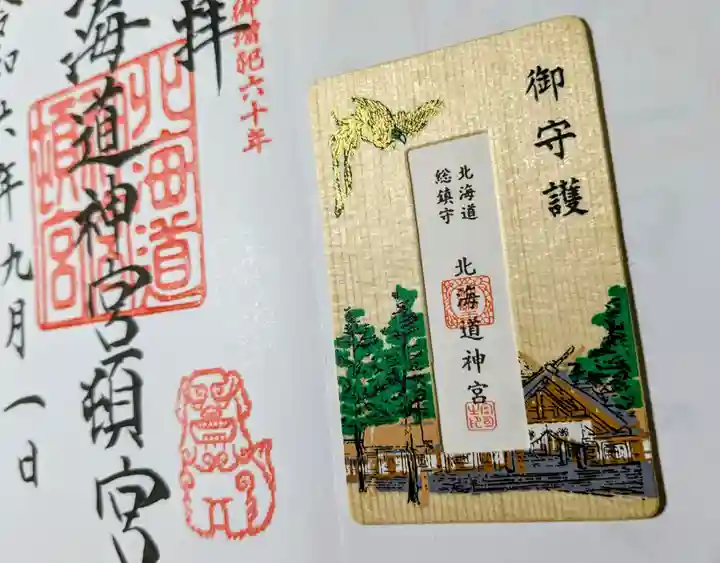 拝
御鎮祀六十年
海道神宮頓宮
北海道
頓宮
令和六年九月一日
御守護
北海道
総鎮守
北海道神宮